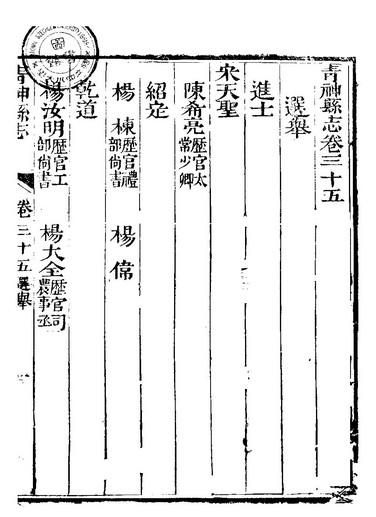 青神縣志卷三十五
選舉
進士
宋天聖
陳希亮歷官太常少卿
紹定
楊棟歷官禮部尚書 楊偉
乾道
楊汝明歷官工部尚書 楊大全歷官司農事丞
青神縣志 卷三十五選舉